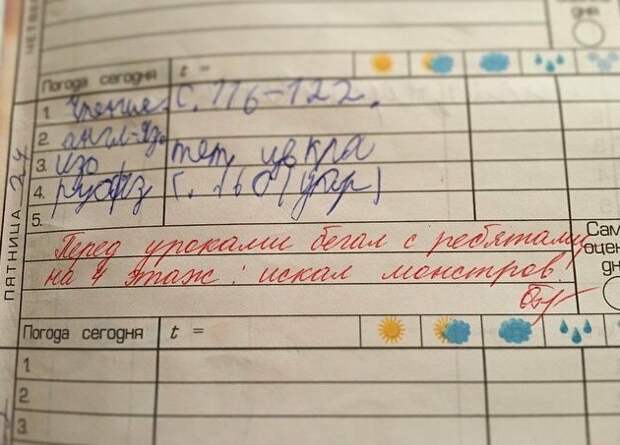 ЧЕТВЕ
дня
Погода сегодня t =
ПЯТНИЦА 24
1. Чтение с. 116-122.
2. англ-яз.
3. изо тет, цв кра
4. русяз с. 160 (упр)
5.
Перед уроками бегал с ребятами
на 4 этаж: искал монстров!
Сам
оцен
дн
Погода сегодня t =
1
2
3.